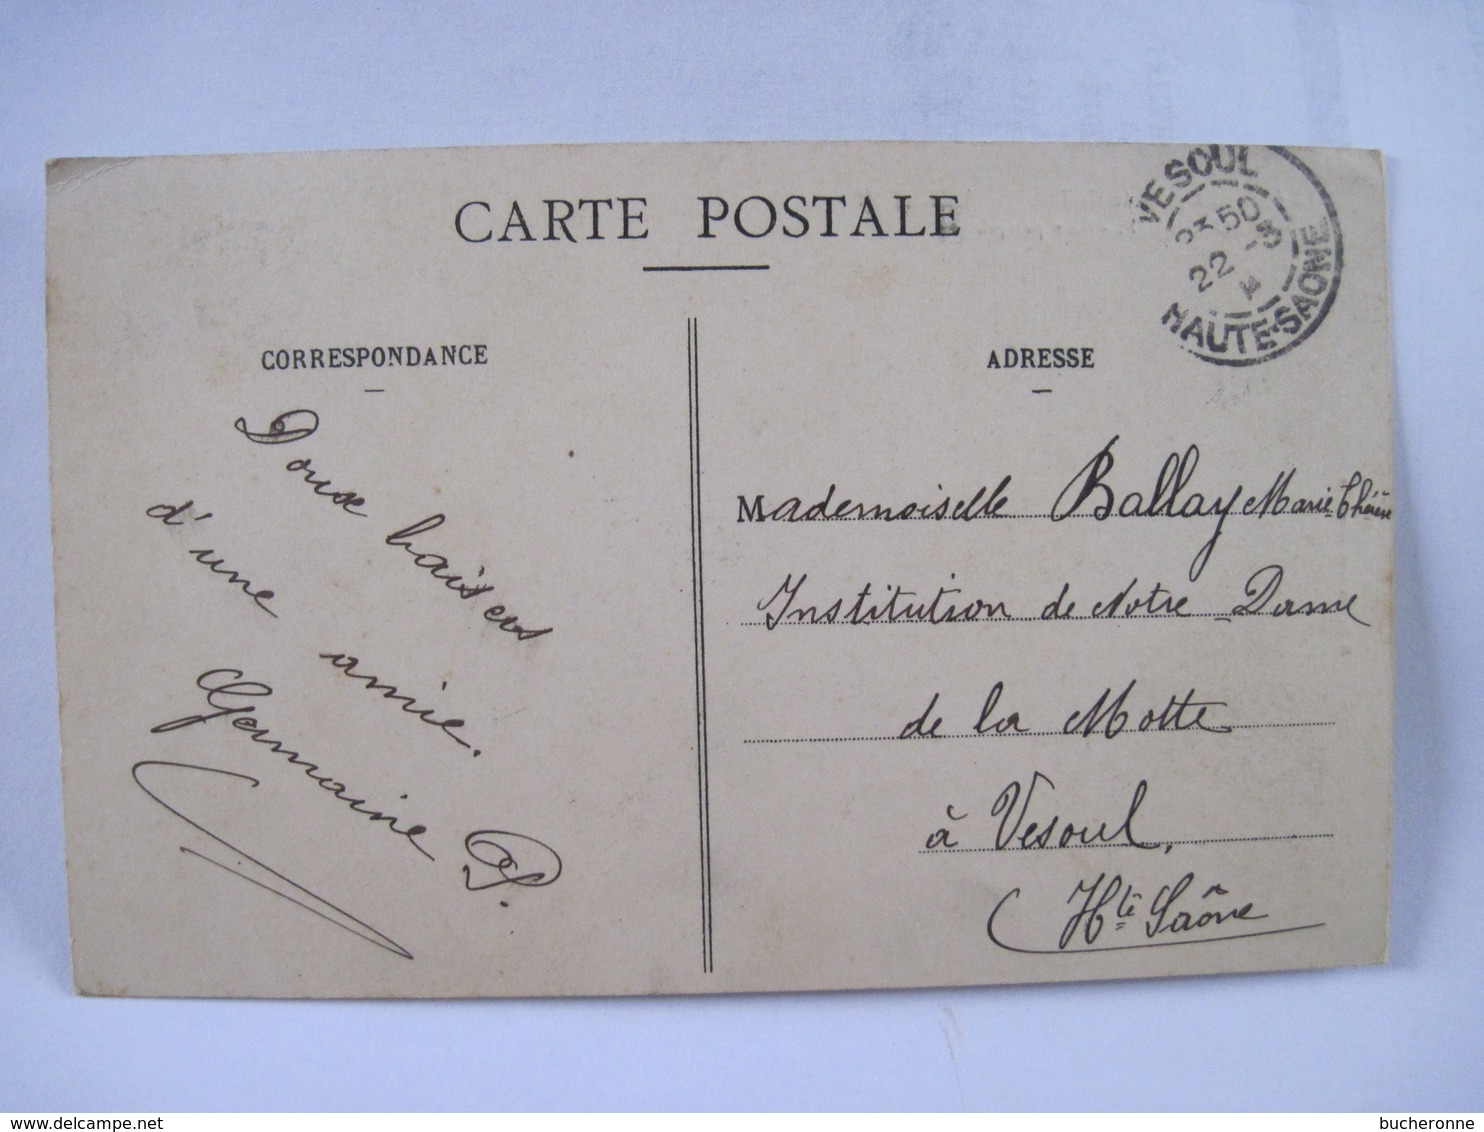 CARTE POSTALE
VESOUL
22
HAUTE-SAONE
CORRESPONDANCE
Doux baisers
d'une amie.
Germaine P.
ADRESSE
Mademoiselle Ballay Marie-Thérèse
Institution de Notre-Dame
de la Motte
à Vesoul,
Hte Saône
bucheronne